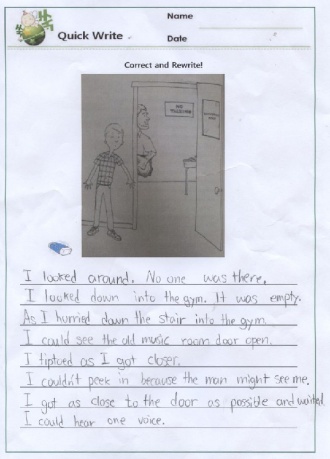 Name
Quick Write
Date
Correct and Rewrite!
I looked around. No one was there.
I looked down into the gym. It was empty.
As I hurried down the stair into the gym.
I could see the old music room door open.
I tiptoed as I got closer.
I couldn't peek in because the man might see me.
I got as close to the door as possible and waited
I could hear one voice.